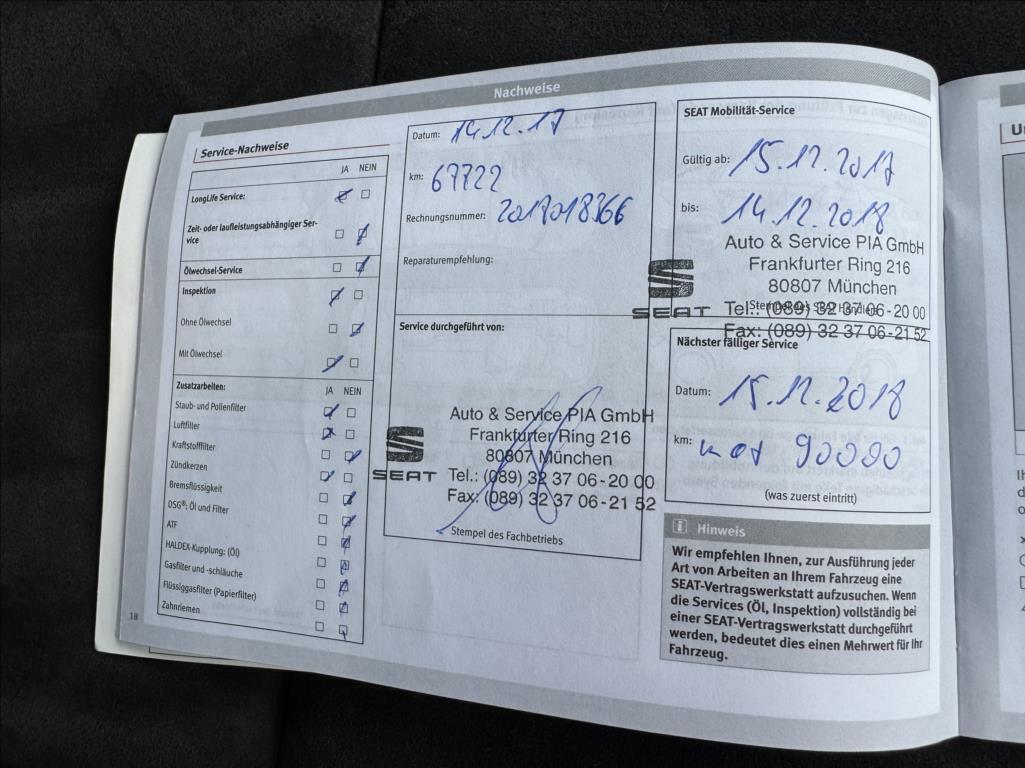 Nachweise
Service-Nachweise
JA NEIN
LongLife Service:
Zeit- oder laufleistungsabhängiger Ser-
vice
Ölwechsel-Service
Inspektion
Ohne Ölwechsel
Mit Ölwechsel
Zusatzarbeiten: JA NEIN
Staub- und Pollenfilter
Luftfilter
Kraftstofffilter
Zündkerzen
Bremsflüssigkeit
DSG®: Öl und Filter
ATF
HALDEX-Kupplung: (Öl)
Gasfilter und -schläuche
Flüssiggasfilter (Papierfilter)
Zahnriemen
18
Datum: 14.12.17
km: 67722
Rechnungsnummer: 2017018366
Reparaturempfehlung:
Service durchgeführt von:
Auto & Service PIA GmbH
Frankfurter Ring 216
80807 München
SEAT
Tel.: (089) 32 37 06-20 00
Fax: (089) 32 37 06-21 52
Stempel des Fachbetriebs
SEAT Mobilität-Service
Gültig ab: 15.12.2017
bis: 14.12.2018
Auto & Service PIA GmbH
Frankfurter Ring 216
80807 München
SEAT
Tel.: (089) 32 37 06-20 00
Fax: (089) 32 37 06-21 52
Nächster fälliger Service
Datum: 15.12.2018
km: 90000
(was zuerst eintritt)
i Hinweis
Wir empfehlen Ihnen, zur Ausführung jeder
Art von Arbeiten an Ihrem Fahrzeug eine
SEAT-Vertragswerkstatt aufzusuchen. Wenn
die Services (Öl, Inspektion) vollständig bei
einer SEAT-Vertragswerkstatt durchgeführt
werden, bedeutet dies einen Mehrwert für Ihr
Fahrzeug.